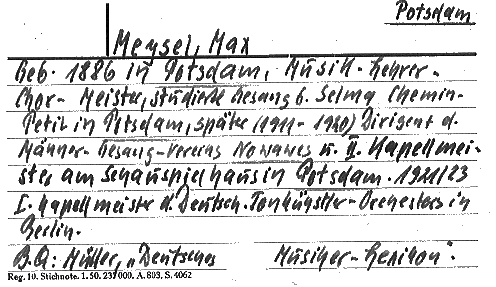 Potsdam
Meysel, Max
Geb. 1886 in Potsdam, Musik-Lehrer-
Chor-Meister, studierte Gesang b. Selma Chemin-
Petit in Potsdam, später (1911-1920) Dirigent d.
Männer-Gesang-Vereins Nowawes u. II. Kapellmei-
ster am Schauspielhaus in Potsdam. 1921/23
I. Kapellmeister d. Deutsch. Tonkünstler-Orchesters in
Berlin.
B.Q: Müller, „Deutsches Musiker-Lexikon".
Reg. 10. Stichnote. 1. 50. 237000. A. 803. S. 4062